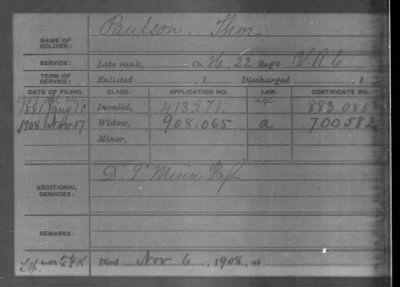 NAME OF SOLDIER: Paulson, Thor
SERVICE: Late rank, Co. H, 22 Reg't V R C
TERM OF SERVICE: Enlisted , 1 Discharged , 1
DATE OF FILING. CLASS. APPLICATION NO. LAW. CERTIFICATE NO.
1881 Jany 10 Invalid, 413.971.
1908 Nov 17 Widow, 908.065 a 700582
Minor,
ADDITIONAL SERVICES: D " Minn Inf
REMARKS:
Died Nov 6, 1908, at